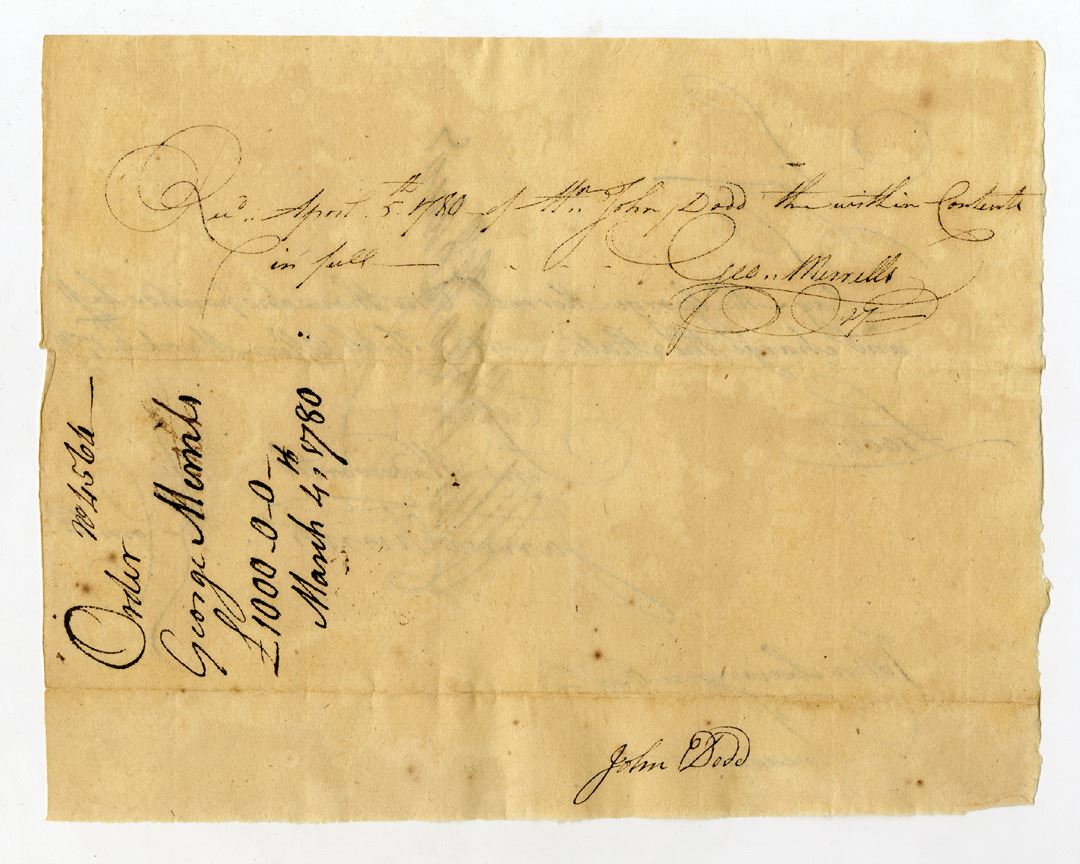 Recd. April 5th 1780 of Mr. John Dodd the within Contents
in full
Geo.. Merrells
Order No 4564
George Merrils
£1000-0-0-
March 4th 1780
John Dodd